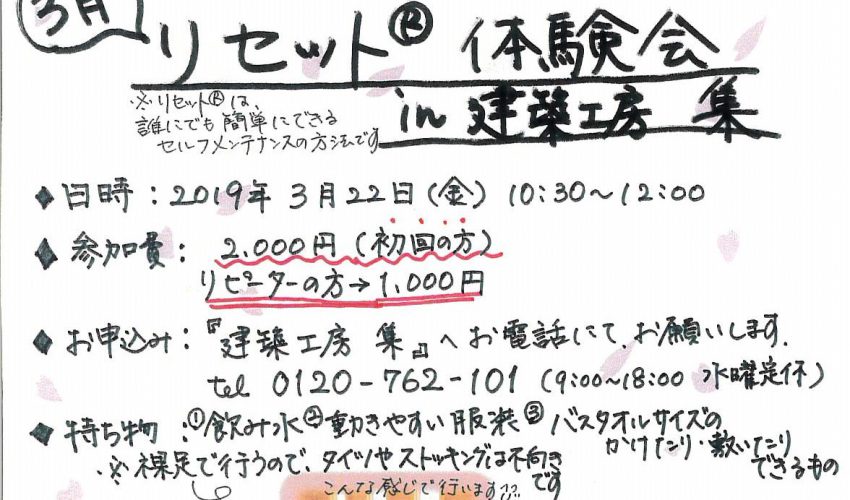 3月
リセット® 体験会
in 建築工房 集
※リセット®は、
誰にでも簡単にできる
セルフメンテナンスの方法です
◆日時：2019年 3月22日(金) 10:30〜12:00
◆参加費：2.000円(初回の方)
リピーターの方→1,000円
◆お申込み：『建築工房 集』へお電話にて、お願いします。
tel 0120-762-101 (9:00〜18:00 水曜定休)
◆持ち物：①飲み水②動きやすい服装③バスタオルサイズの
かけたり・敷いたり
できるもの
※裸足で行うので、タイツやストッキングは不向き
です
こんな感じで行います